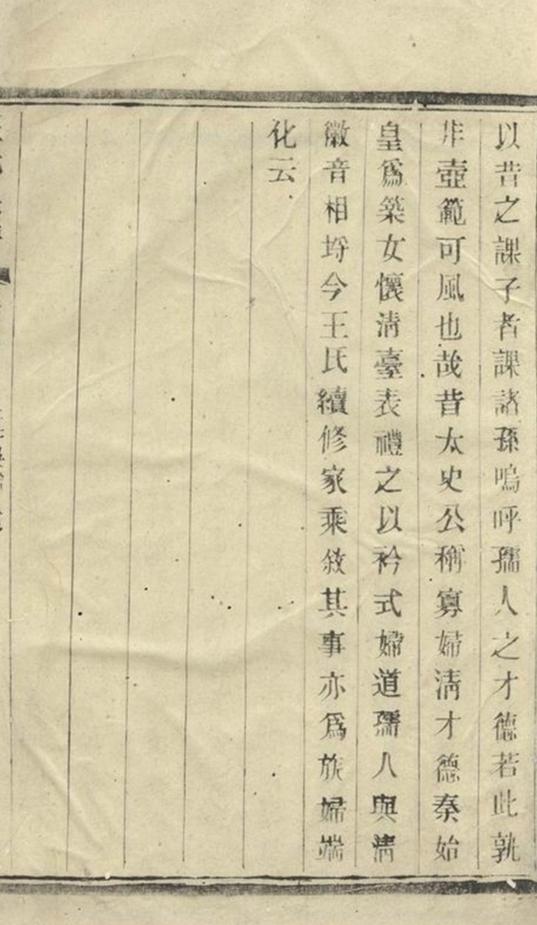 以昔之課子者課諸孫嗚呼孺人之才德若此孰
非壼範可風也哉昔太史公稱寡婦淸才德秦始
皇爲築女懷淸臺表禮之以矜式婦道孺人與淸
徽音相埒今王氏續修家乘敘其事亦爲族婦端
化云